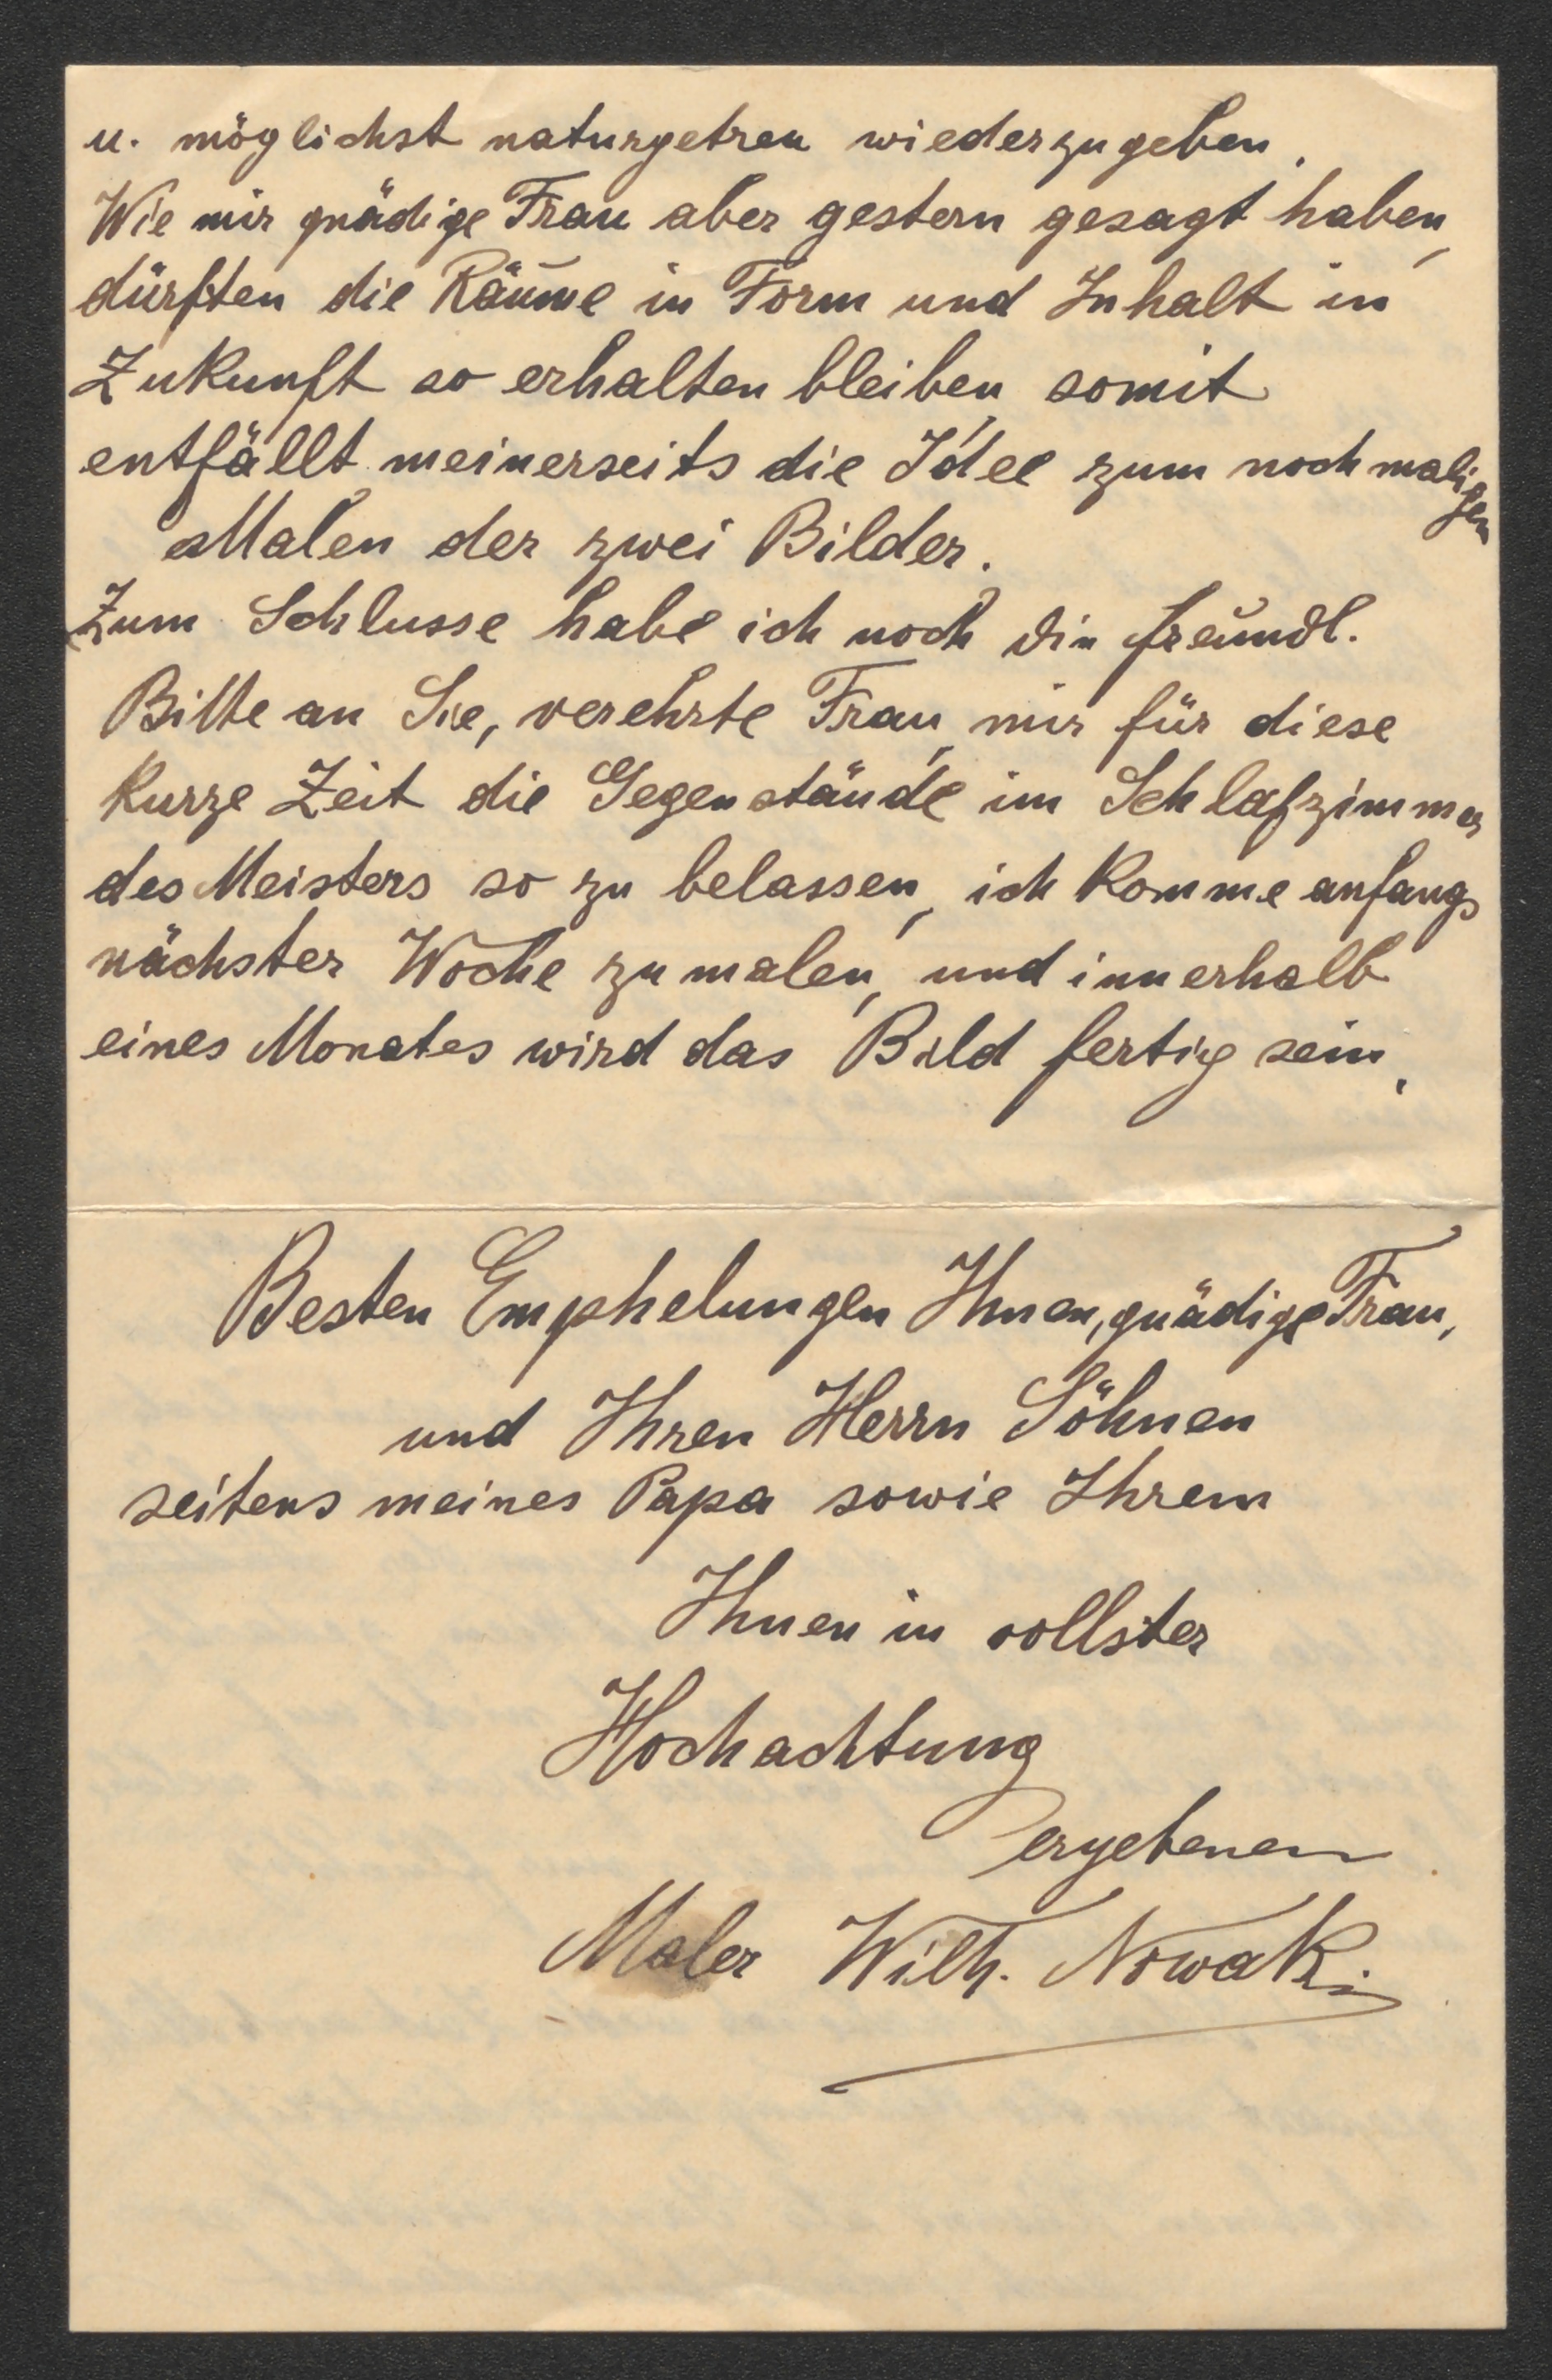 u. möglichst naturgetreu wiederzugeben.
Wie mir gnädige Frau aber gestern gesagt haben,
dürften die Räume in Form und Inhalt in
Zukunft so erhalten bleiben, somit
entfällt meinerseits die Idee zum nochmaligen
Malen der zwei Bilder.
Zum Schlusse habe ich noch die freundl.
Bitte an Sie, verehrte Frau, mir für diese
kurze Zeit die Gegenstände im Schlafzimmer
des Meisters so zu belassen, ich komme anfangs
nächster Woche zu malen, und innerhalb
eines Monates wird das Bild fertig sein.
Besten Emphelungen Ihnen, gnädige Frau,
und Ihren Herrn Söhnen
seitens meines Papa sowie Ihrem
Ihnen in vollster
Hochachtung
ergebenen
Maler Wilh. Nowak.